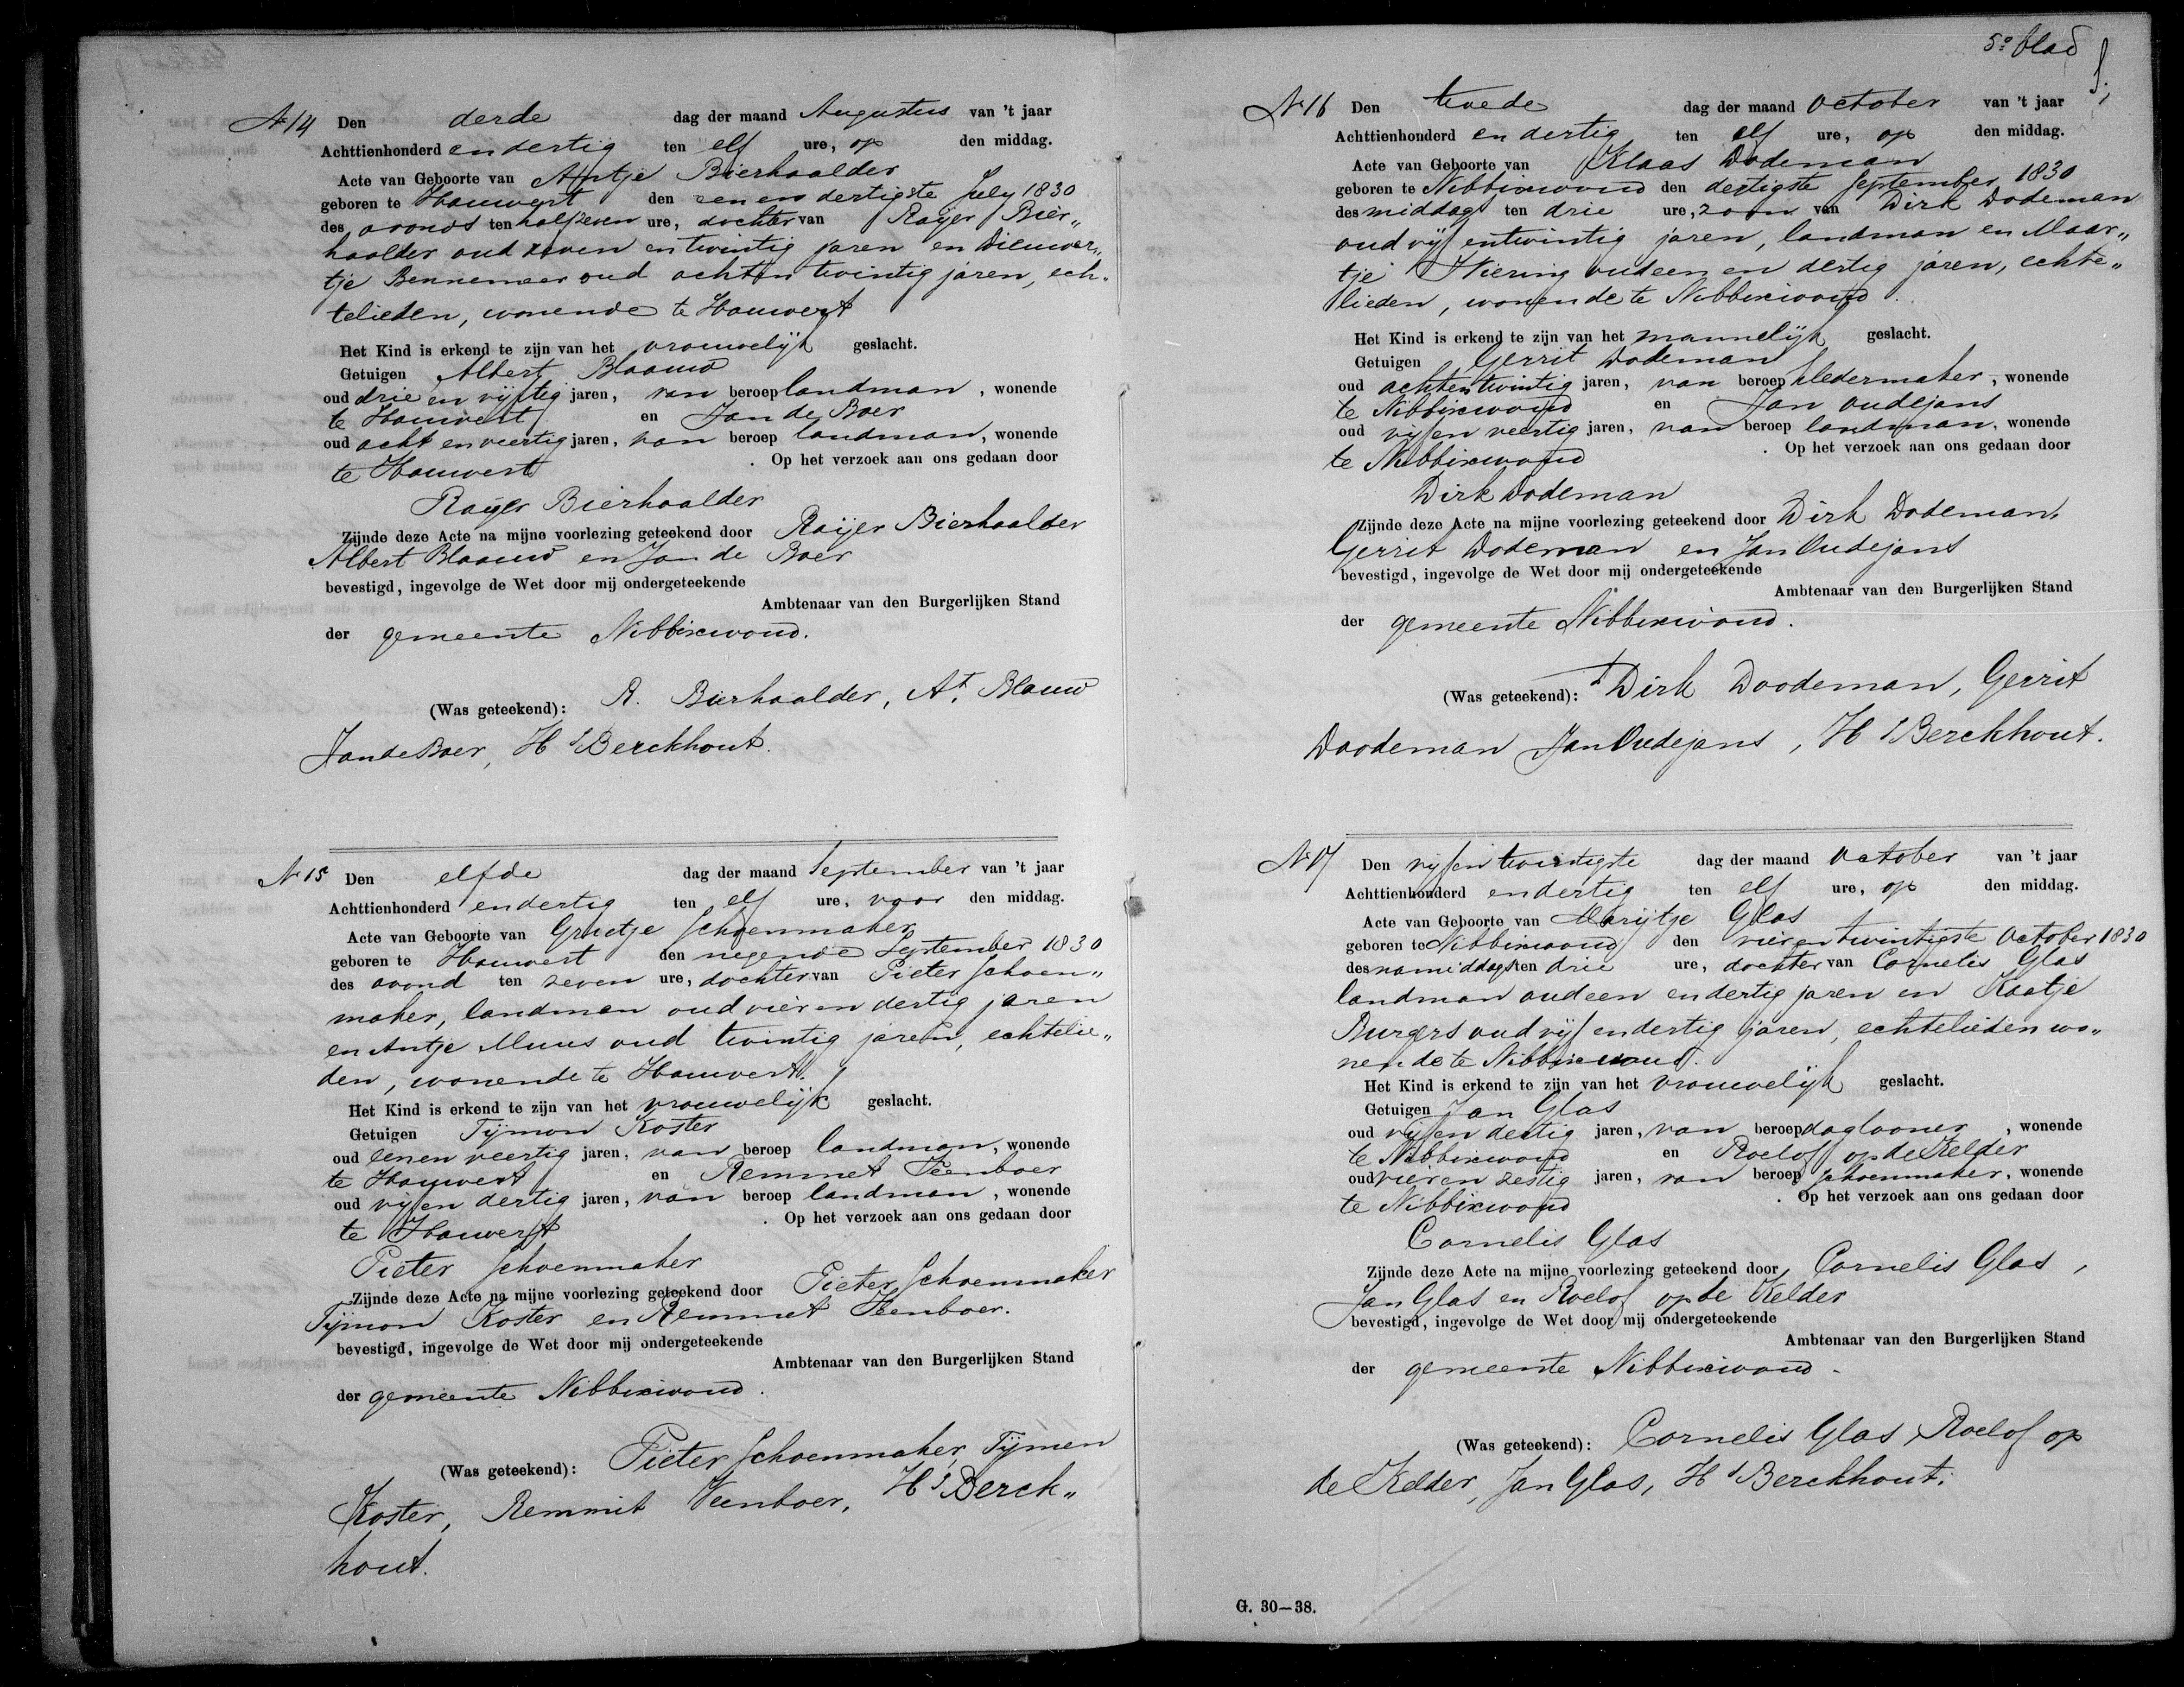 No 14 Den derde dag der maand Augustus van 't jaar
Achttienhonderd en dertig ten elf ure, op den middag.
Acte van Geboorte van Antje Bierhaalder
geboren te Hauwert den een en dertigste July 1830
des avonds ten half zeven ure, dochter van Raijer Bier„
haalder oud zeven en twintig jaren en Dieuwer„
tje Bennemeer oud acht en twintig jaren, ech„
telieden, wonende te Hauwert
Het Kind is erkend te zijn van het vrouwelijk geslacht.
Getuigen Albert Blaauw
oud drie en vijftig jaren, van beroep landman, wonende
te Hauwert en Jan de Boer
oud acht en veertig jaren, van beroep landman, wonende
te Hauwert. Op het verzoek aan ons gedaan door
Raijer Bierhaalder
Zijnde deze Acte na mijne voorlezing geteekend door Raijer Bierhaalder
Albert Blaauw en Jan de Boer
bevestigd, ingevolge de Wet door mij ondergeteekende
Ambtenaar van den Burgerlijken Stand
der gemeente Nibbixwoud.
(Was geteekend): R. Bierhaalder, At. Blauw
Jan de Boer, H. Berckhout.
No 15 Den elfde dag der maand September van 't jaar
Achttienhonderd en dertig ten elf ure, voor den middag.
Acte van Geboorte van Grietje Schoenmaker
geboren te Hauwert den negende September 1830
des avond ten zeven ure, dochter van Pieter Schoen„
maker, landman oud vier en dertig jaren
en Antje Muus oud twintig jaren, echtelie„
den, wonende te Hauwert.
Het Kind is erkend te zijn van het vrouwelijk geslacht.
Getuigen Tijmon Koster
oud eenen veertig jaren, van beroep landman, wonende
te Hauwert en Remmet Veenboer
oud vijf en dertig jaren, van beroep landman, wonende
te Hauwert. Op het verzoek aan ons gedaan door
Pieter Schoenmaker
Zijnde deze Acte na mijne voorlezing geteekend door Pieter Schoenmaker
Tijmon Koster en Remmet Veenboer.
bevestigd, ingevolge de Wet door mij ondergeteekende
Ambtenaar van den Burgerlijken Stand
der gemeente Nibbixwoud.
(Was geteekend): Pieter Schoenmaker, Tijmen
Koster, Remmit Veenboer, H. Berck„
hout.
5e blad
No 16 Den twede dag der maand October van 't jaar
Achttienhonderd en dertig ten elf ure, op den middag.
Acte van Geboorte van Klaas Dodeman
geboren te Nibbixwoud den dertigste September 1830
des middags ten drie ure, zoon van Dirk Dodeman
oud vijf entwintig jaren, landman en Maar„
tje Wiering oud een en dertig jaren, echte„
lieden, wonende te Nibbixwoud.
Het Kind is erkend te zijn van het mannelijk geslacht.
Getuigen Gerrit Dodeman
oud achten twintig jaren, van beroep kledermaker, wonende
te Nibbixwoud en Jan Oudejans
oud vijf en veertig jaren, van beroep landman, wonende
te Nibbixwoud. Op het verzoek aan ons gedaan door
Dirk Dodeman
Zijnde deze Acte na mijne voorlezing geteekend door Dirk Dodeman,
Gerrit Dodeman en Jan Oudejans
bevestigd, ingevolge de Wet door mij ondergeteekende
Ambtenaar van den Burgerlijken Stand
der gemeente Nibbixwoud.
(Was geteekend): Dirk Doodeman, Gerrit
Doodeman Jan Oudejans, H. Berckhout.
No 17 Den vijf en twintigste dag der maand October van 't jaar
Achttienhonderd en dertig ten elf ure, op den middag.
Acte van Geboorte van Marijtje Glas
geboren te Nibbixwoud den vier en twintigste October 1830
des namiddags ten drie ure, dochter van Cornelis Glas
landman oud een en dertig jaren en Kaatje
Burgers oud vijf en dertig jaren, echtelieden wo„
nende te Nibbixwoud.
Het Kind is erkend te zijn van het vrouwelijk geslacht.
Getuigen Jan Glas
oud vijf en dertig jaren, van beroep daglooner, wonende
te Nibbixwoud en Roelof op de Kelder
oud vier en zestig jaren, van beroep schoenmaker, wonende
te Nibbixwoud. Op het verzoek aan ons gedaan door
Cornelis Glas
Zijnde deze Acte na mijne voorlezing geteekend door Cornelis Glas,
Jan Glas en Roelof op de Kelder
bevestigd, ingevolge de Wet door mij ondergeteekende
Ambtenaar van den Burgerlijken Stand
der gemeente Nibbixwoud.
(Was geteekend): Cornelis Glas, Roelof op
de Kelder, Jan Glas, H. Berckhout.
G. 30—38.